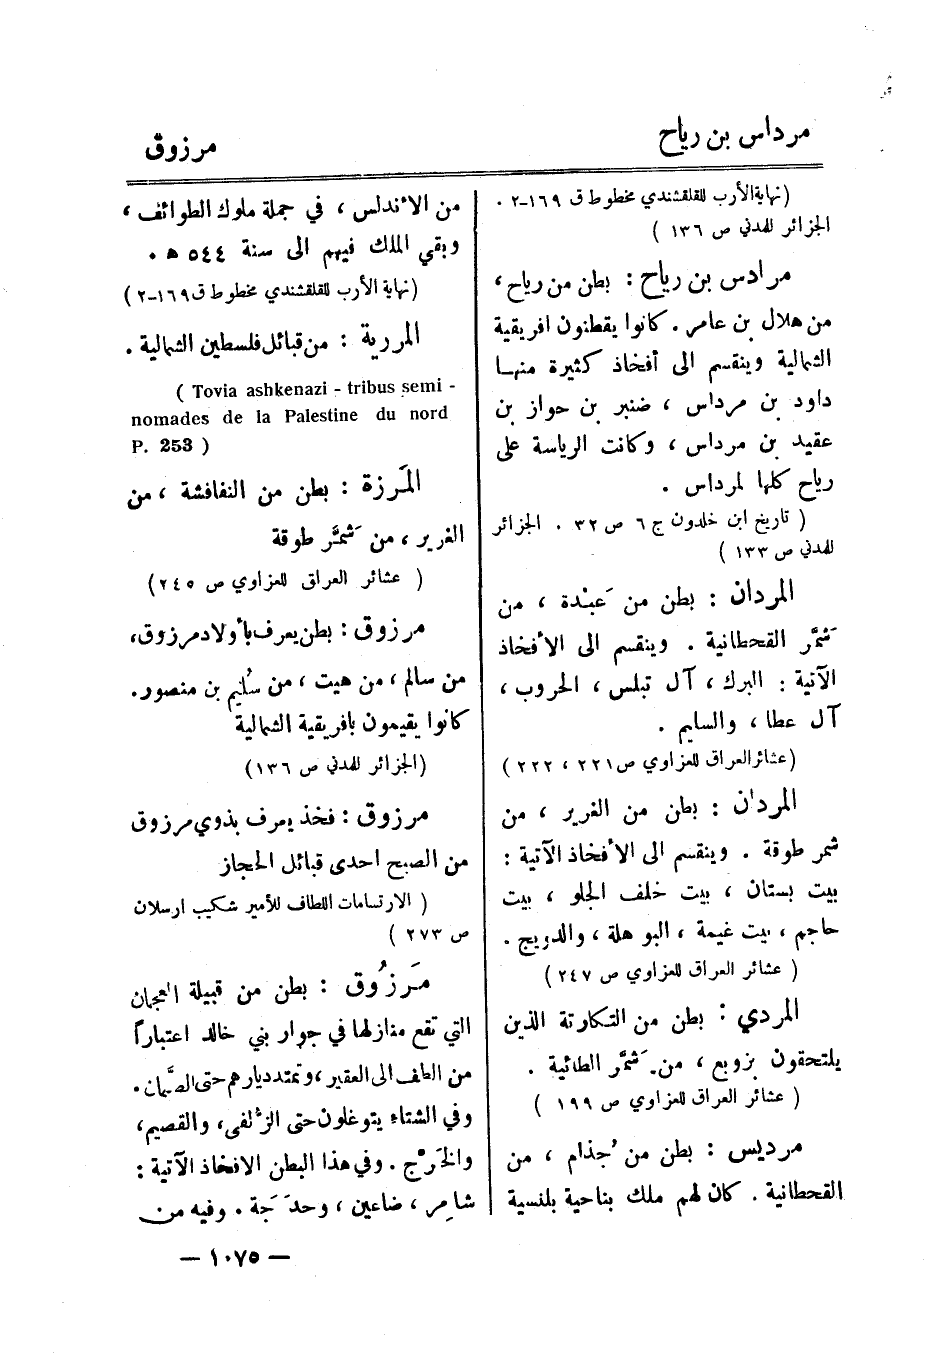 مرداس بن رياح
مرزوق
(نهاية الأرب للقلقشندي مخطوط ق ١٦٩-٢ .
الجزائر للمدني ص ١٣٦ )
مرادس بن رياح : بطن من رياح ،
من هلال بن عامر . كانوا يقطنون افريقية
الشمالية وينقسم الى أفخاذ كثيرة منهــا
داود بن مرداس ، ضنبر بن حواز بن
عقيد بن مرداس ، وكانت الرياسة على
رياح كلها لمرداس .
( تاريخ ابن خلدون ج ٦ ص ٣٢ . الجزائر
للمدني ص ١٣٣ )
المردان : بطن من عَبْدة ، من
شَمَّر القحطانية . وينقسم الى الأفخاذ
الآتية : البرك ، آل تبلس ، الحروب ،
آل عطا ، والسليم .
(عشائر العراق للعزاوي ص ٢٢١ ، ٢٢٢ )
المردان : بطن من الغرير ، من
شمر طوقة . وينقسم الى الأفخاذ الآتية :
بيت بستان ، بيت خلف الجلو ، بيت
حاجم ، بيت غيمة ، البو هلة ، والدويج .
( عشائر العراق للعزاوي ص ٢٤٧ )
المردي : بطن من التكارتة الذين
يلتحقون بزوبع ، من شَمَّر الطائية .
( عشائر العراق للعزاوي ص ١٩٩ )
مرديس : بطن من جُذام ، من
القحطانية . كان لهم ملك بناحية بلنسية
من الأندلس ، في جملة ملوك الطوائف ،
وبقي الملك فيهم الى سنة ٥٤٤ هـ .
(نهاية الأرب للقلقشندي مخطوط ق ١٦٩-٢ )
المررية : من قبائل فلسطين الشمالية .
( Tovia ashkenazi - tribus semi -
nomades de la Palestine du nord
P. 253 )
المَرزة : بطن من النفافشة ، من
الغرير ، من شَمَّر طوقة
( عشائر العراق للعزاوي ص ٢٤٥ )
مرزوق : بطن يعرف بأولاد مرزوق ،
من سالم ، من هيت ، من سُلَيم بن منصور .
كانوا يقيمون بافريقية الشمالية
(الجزائر للمدني ص ١٣٦ )
مرزوق : فخذ يعرف بذوي مرزوق
من الصبح احدى قبائل الحجاز
( الارتسامات اللطاف للأمير شكيب ارسلان
ص ٢٧٣ )
مَرزُوق : بطن من قبيلة العجمان
التي تقع منازلها في جوار بني خالد اعتباراً
من الطف الى العقير ، وتمتد ديارهم حتى الصَّمان .
وفي الشتاء يتوغلون حتى الزُلفى ، والقصيم ،
والخَرْج . وفي هذا البطن الافخاذ الآتية :
شامِر ، ضاعين ، وحدجَة . وفيه من
— ١٠٧٥ —